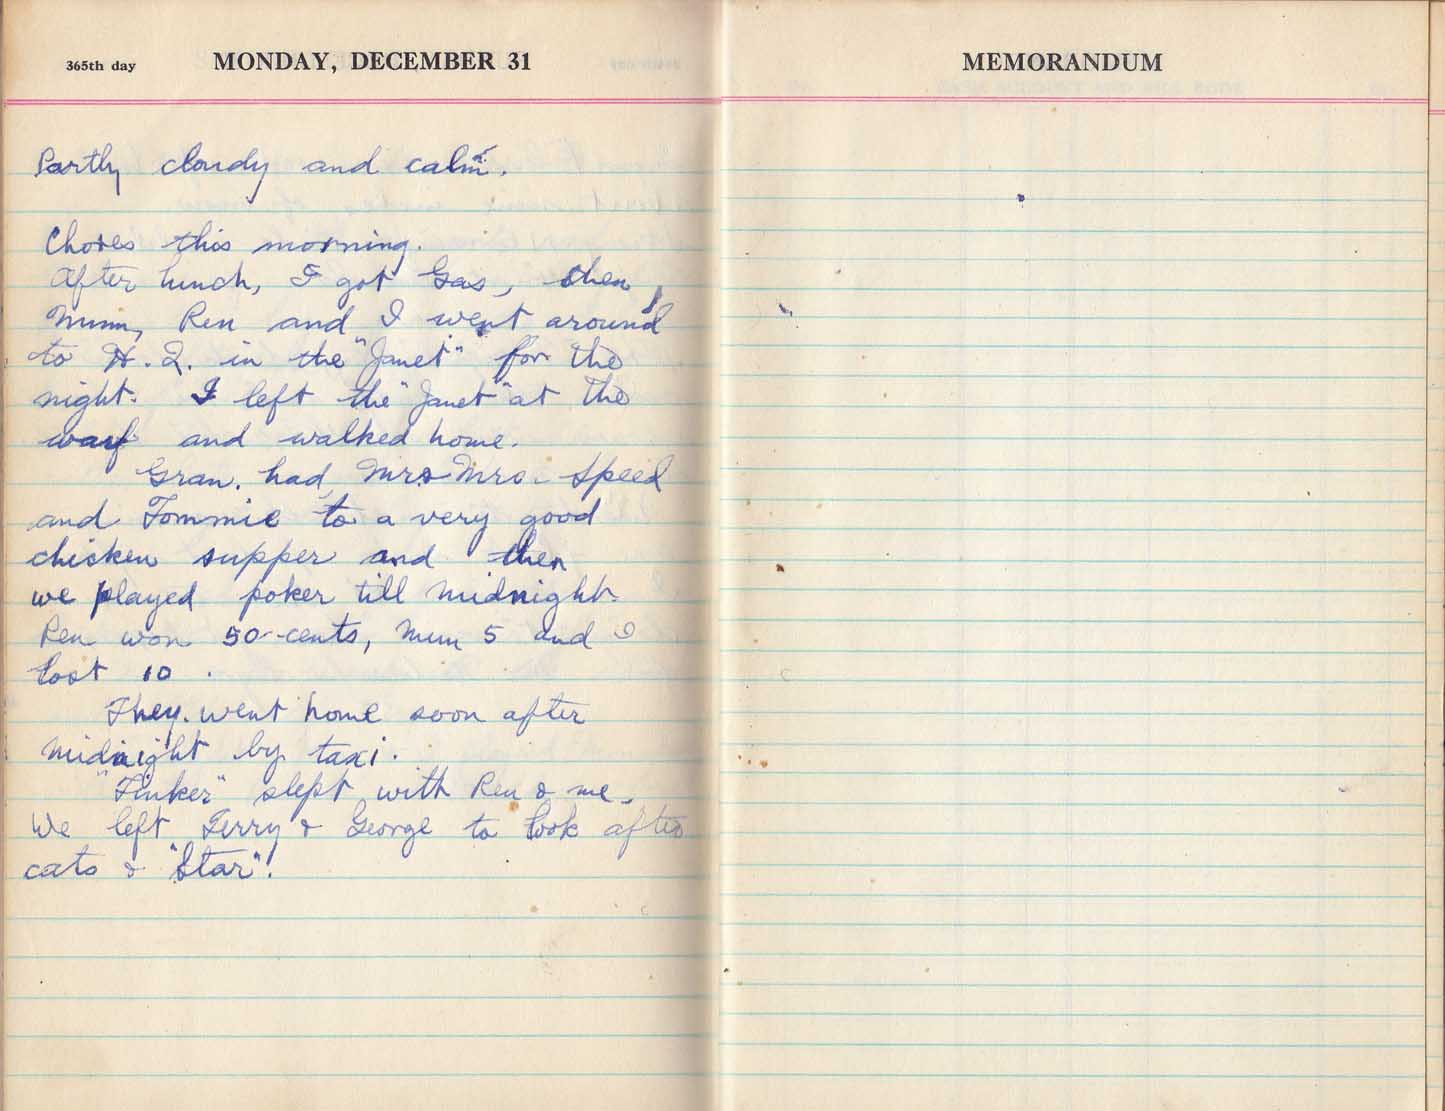 365th day MONDAY, DECEMBER 31
Partly cloudy and calm.
Chores this morning.
After lunch, I got Gas, then
Mum, Ren and I went around
to H.Q. in the "Janet" for the
night. I left the "Janet" at the
warf and walked home.
Gran. had Mrs Mrs. Speed
and Tommie to a very good
chicken supper and then
we played poker till midnight.
Ren won 50 cents, Mum 5 and I
lost 10.
They went home soon after
midnight by taxi.
"Tinker" slept with Ren & me.
We left Terry & George to look after
cats & "Star".
MEMORANDUM